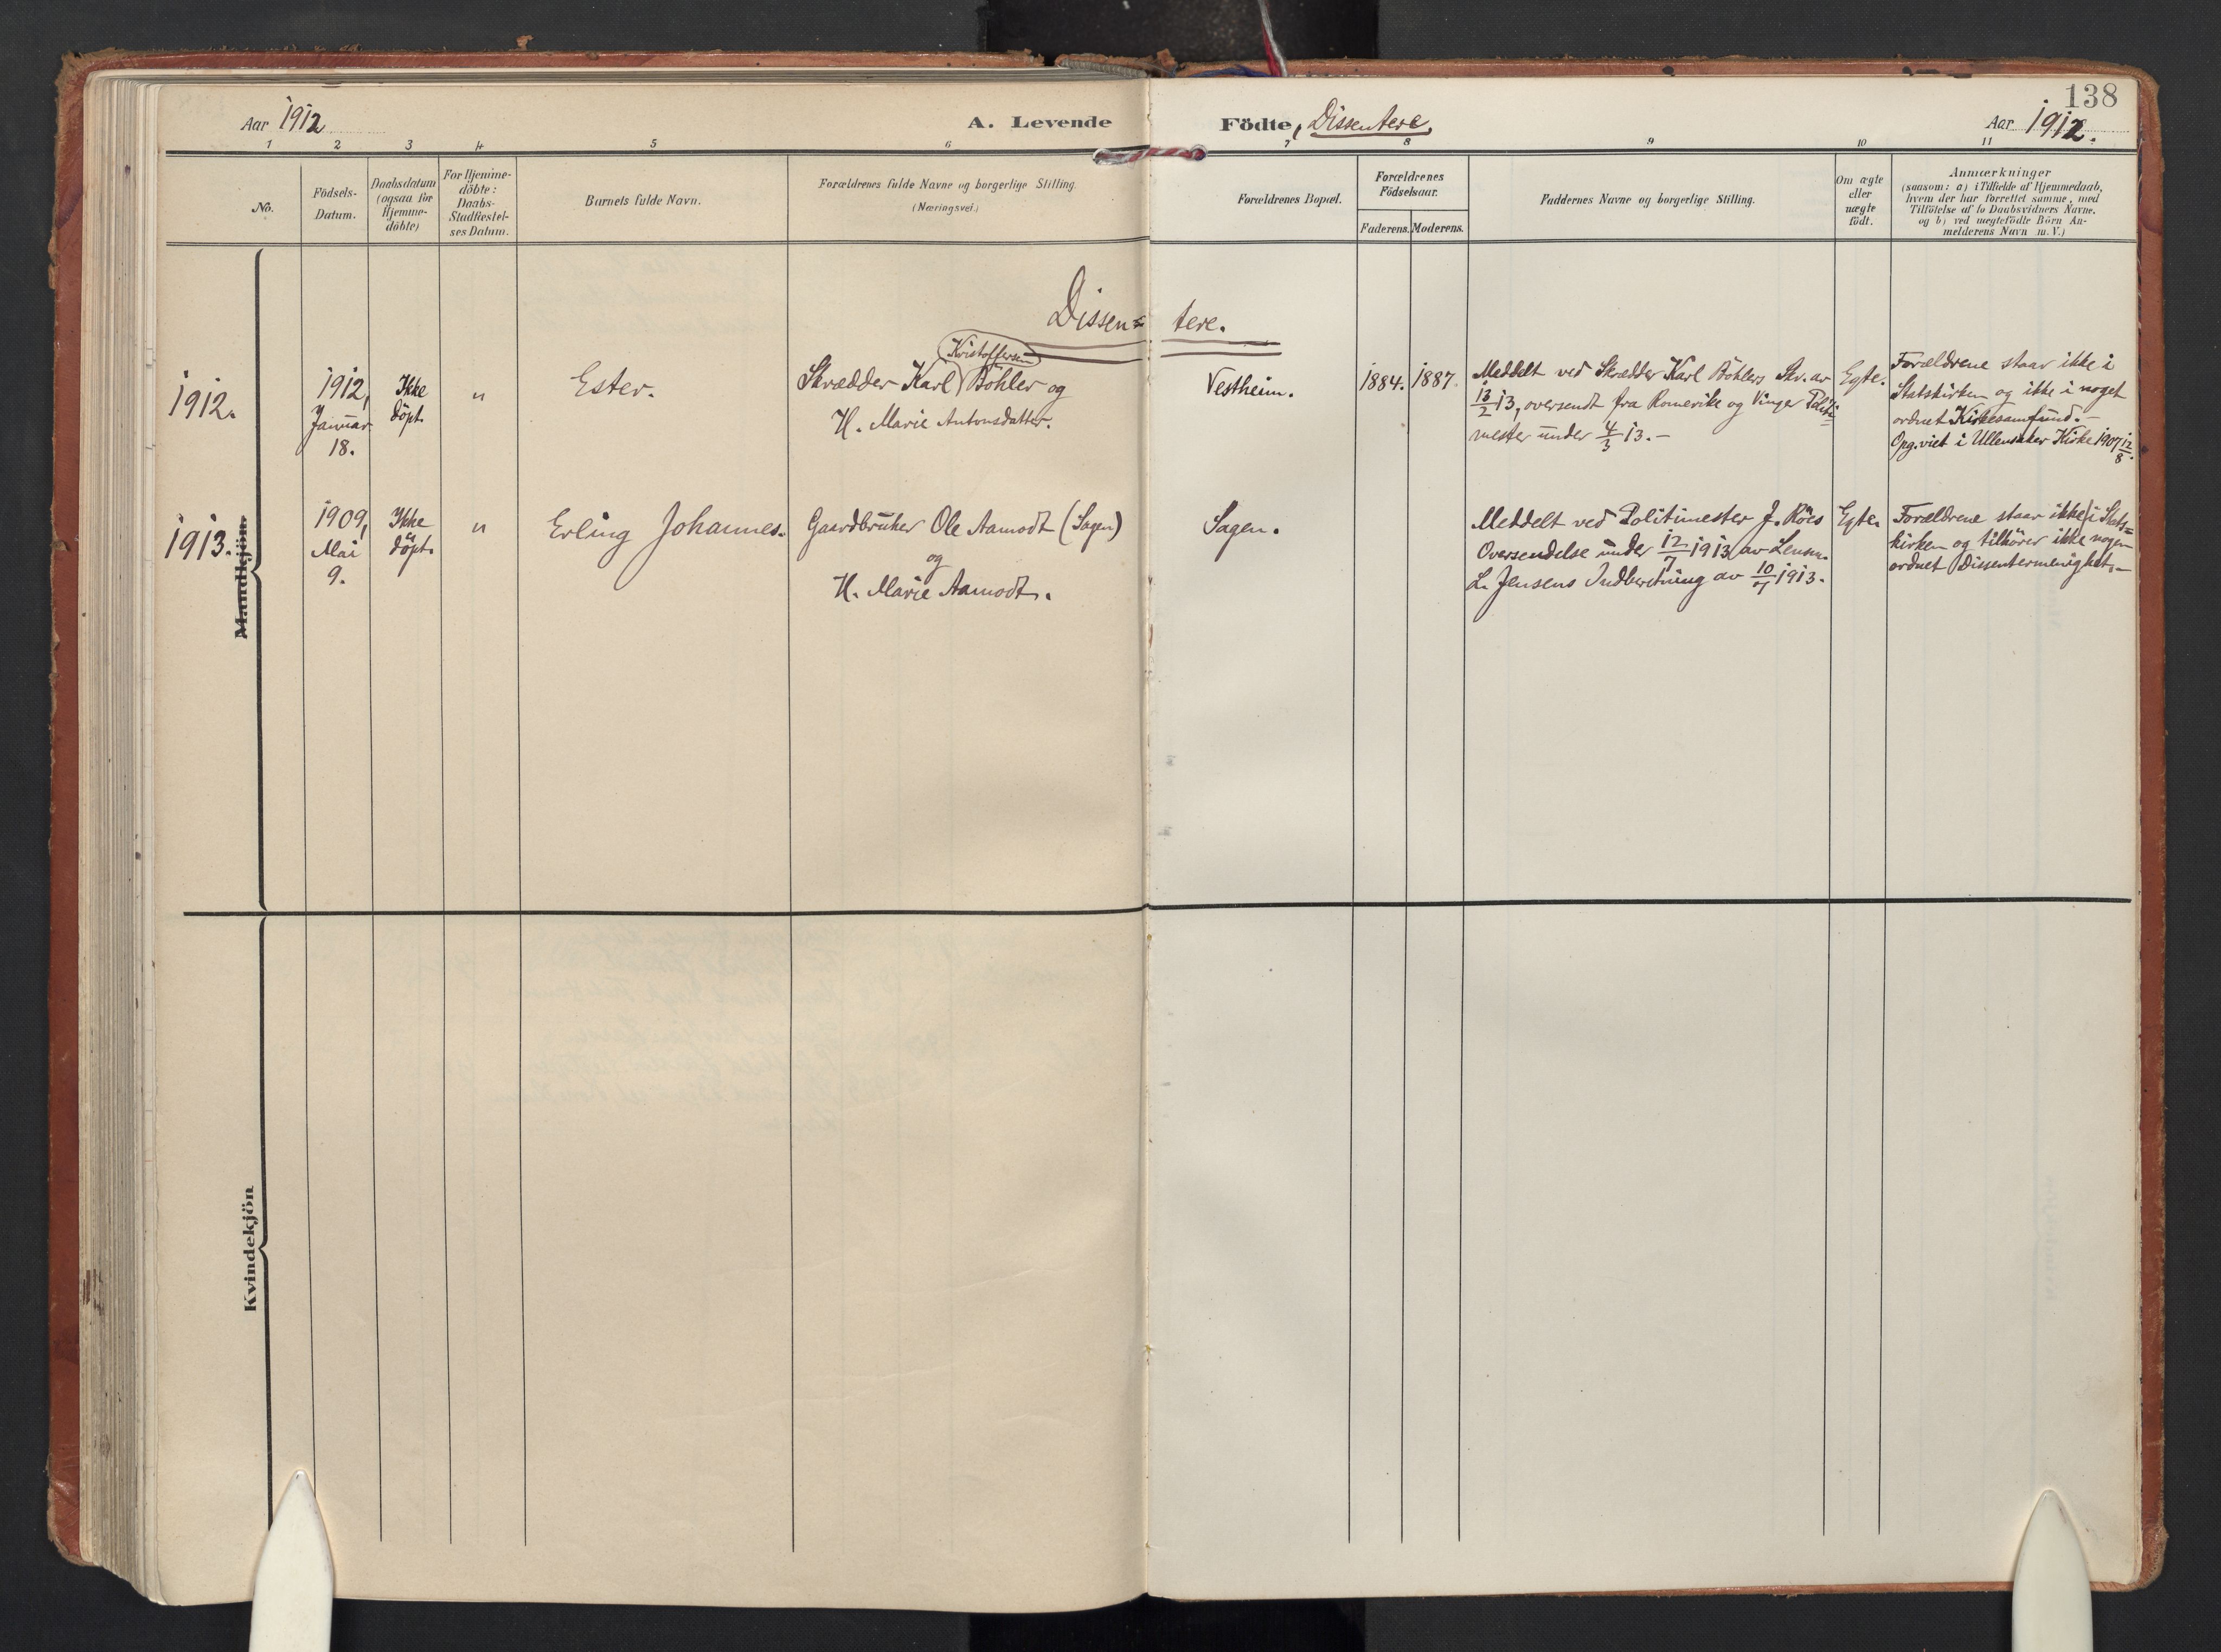 138
Aar 1912
A. Levende Födte, Dissentere.
Aar 1912.
1 2 3 4 5 6 7 8 9 10 11
No.
Födsels-
Datum.
Daabsdatum
(ogsaa for
Hjemme-
döbte)
For Hjemme-
döbte:
Daabs-
Stadfæstel-
ses Datum.
Barnets fulde Navn.
Forældrenes fulde Navne og borgerlige Stilling.
(Næringsvei.)
Forældrenes Bopæl.
Forældrenes
Födselsaar.
Faderens. Moderens.
Faddernes Navne og borgerlige Stilling.
Om ægte
eller
uægte
födt.
Anmærkninger
(saasom: a) i Tilfælde af Hjemmedaab,
hvem der har forrettet samme, med
Tilföielse af to Daabsvidners Navne.
og b) ved uegtefödte Börn An-
melderens Navn m. V.)
Dissen= tere.
1912.
1912,
Januar
18.
Ikke
döpt.
"
Ester.
Kristoffersen
Skrædder Karl Böhler og
H. Marie Antonsdatter.
Vestheim.
1884. 1887.
Meddelt ved Skrædder Karl Böhlers Skr. av
13/2 13, oversendt fra Romerike og Vinger Politi=
mester under 4/3 13. –
Egte.
Forældrene staar ikke i
Statskirken og ikke i noget
ordnet Kirkesamfund. –
Opg. viet i Ullensaker Kirke 1907 12/8.
1913.
1909,
Mai
9.
Ikke
döpt.
"
Erling Johannes.
Gaardbruker Ole Aamodt (Sagen)
og
H. Marie Aamodt.
Sagen.
Meddelt ved Politimester J. Röes
Oversendelse under 12/7 1913 av Lensm.
L. Jensens Indberetning av 10/7 1913.
Egte.
Forældrene staar ikke i Stats=
kirken og tilhörer ikke nogen
ordnet Dissentermenighet. –
Mandkjön
Kvindekjön